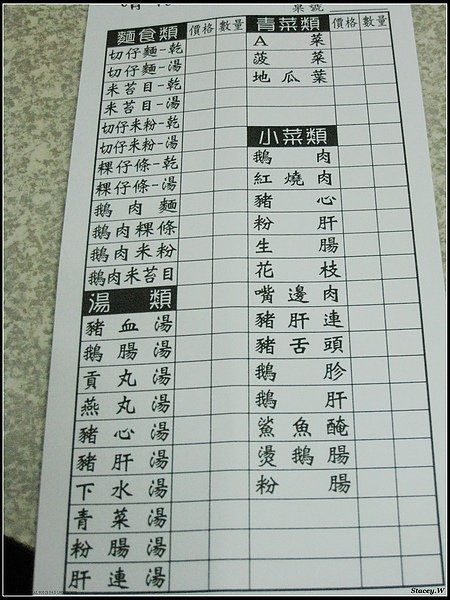 麵食類 價格 數量
切仔麵-乾
切仔麵-湯
米苔目-乾
米苔目-湯
切仔米粉-乾
切仔米粉-湯
粿仔條-乾
粿仔條-湯
鵝肉麵
鵝肉粿條
鵝肉米粉
鵝肉米苔目
湯類
豬血湯
鵝腸湯
貢丸湯
燕丸湯
豬心湯
豬肝湯
下水湯
青菜湯
粉腸湯
肝連湯
青菜類 價格 數量
A菜
菠菜
地瓜葉
小菜類
鵝肉
紅燒肉
豬心
粉肝
生腸
花枝
嘴邊肉
豬肝連
豬舌頭
鵝胗
鵝肝
鯊魚醃
燙鵝腸
粉腸
Stacey.W